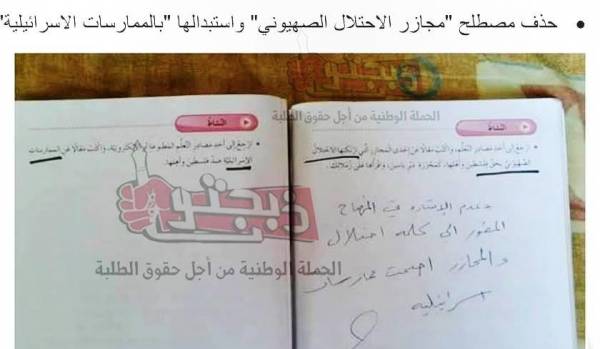 • حذف مصطلح "مجازر الاحتلال الصهيوني" واستبدالها "بالممارسات الاسرائيلية"
ذبحتونا
الحملة الوطنية من أجل حقوق الطلبة
النشاط
• ارجع إلى أحد مصادر التعلم المطبوعة أو الإلكترونية، واكتب مقالا عن إحدى المجازر التي ارتكبها الاحتلال
الصهيوني بحق فلسطين وأهلها، كمجزرة دير ياسين، واقرأها على زملائك.
وعدم الإشارة في المنهاج
المطور الى كلمة احتلال
والمجازر اصبحت ممارسات
اسرائيلية
النشاط
• ارجع إلى أحد مصادر التعلم المطبوعة أو الإلكترونية، واكتب مقالا عن الممارسات
الإسرائيلية ضد فلسطين وأهلها.
ذبحتونا
الحملة الوطنية من أجل حقوق الطلبة